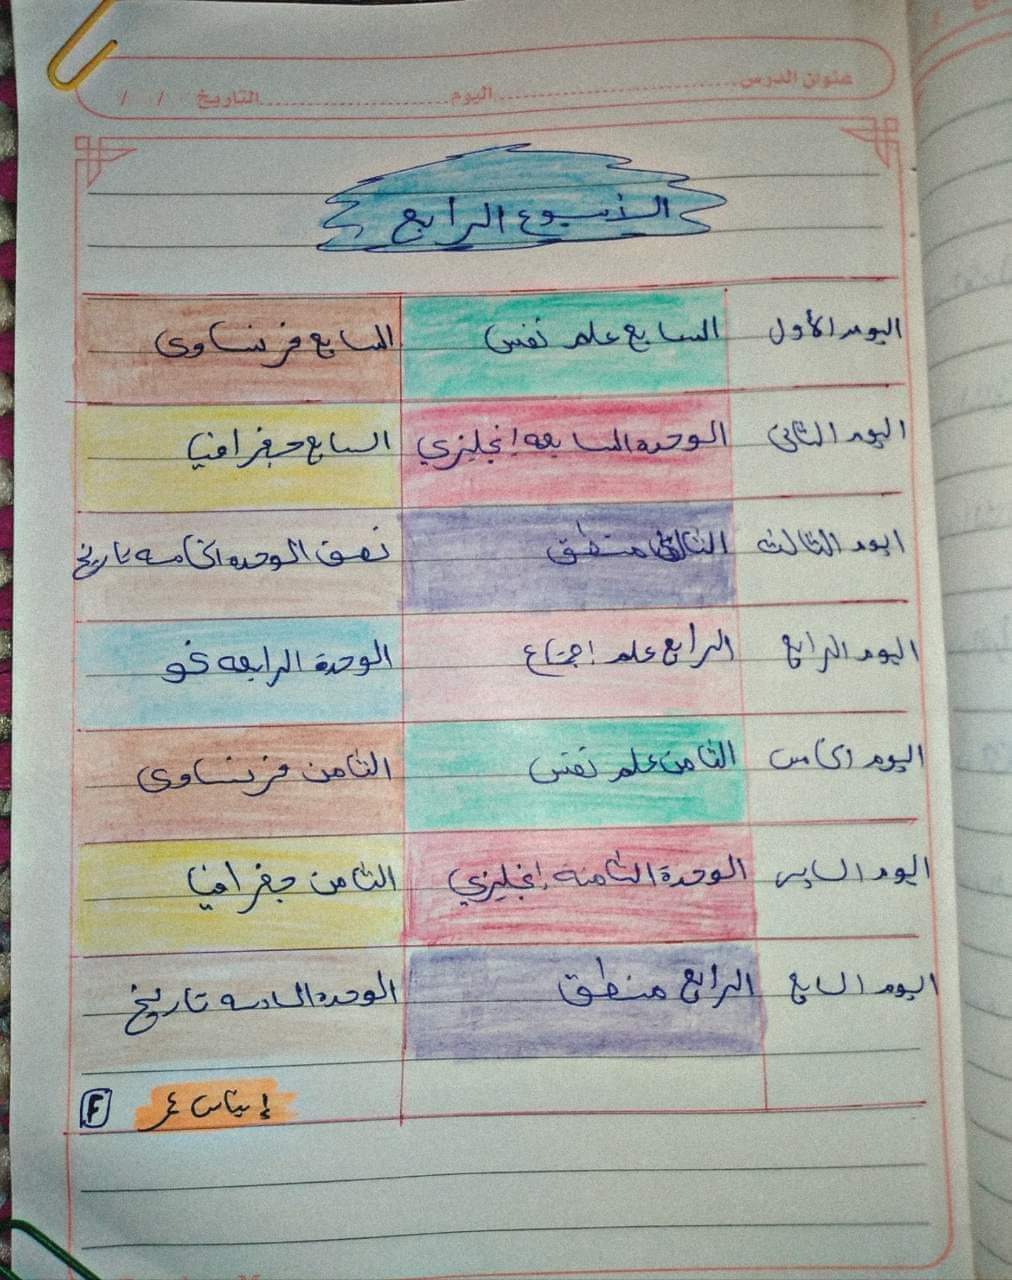 عنوان الدرس ........ اليوم ........ التاريخ / /
الأسبوع الرابع
اليوم الأول السابع علم نفس السابع فرنساوى
اليوم الثانى الوحده السابعه إنجليزي السابع جغرافيا
اليوم الثالث الثالث منطق نصف الوحده الخامسه تاريخ
اليوم الرابع الرابع علم اجتماع الوحدة الرابعه نحو
اليوم الخامس الثامن علم نفس الثامن فرنساوى
اليوم السادس الوحدة الثامنه إنجليزي الثامن جغرافيا
اليوم السابع الرابع منطق الوحده السادسه تاريخ
F